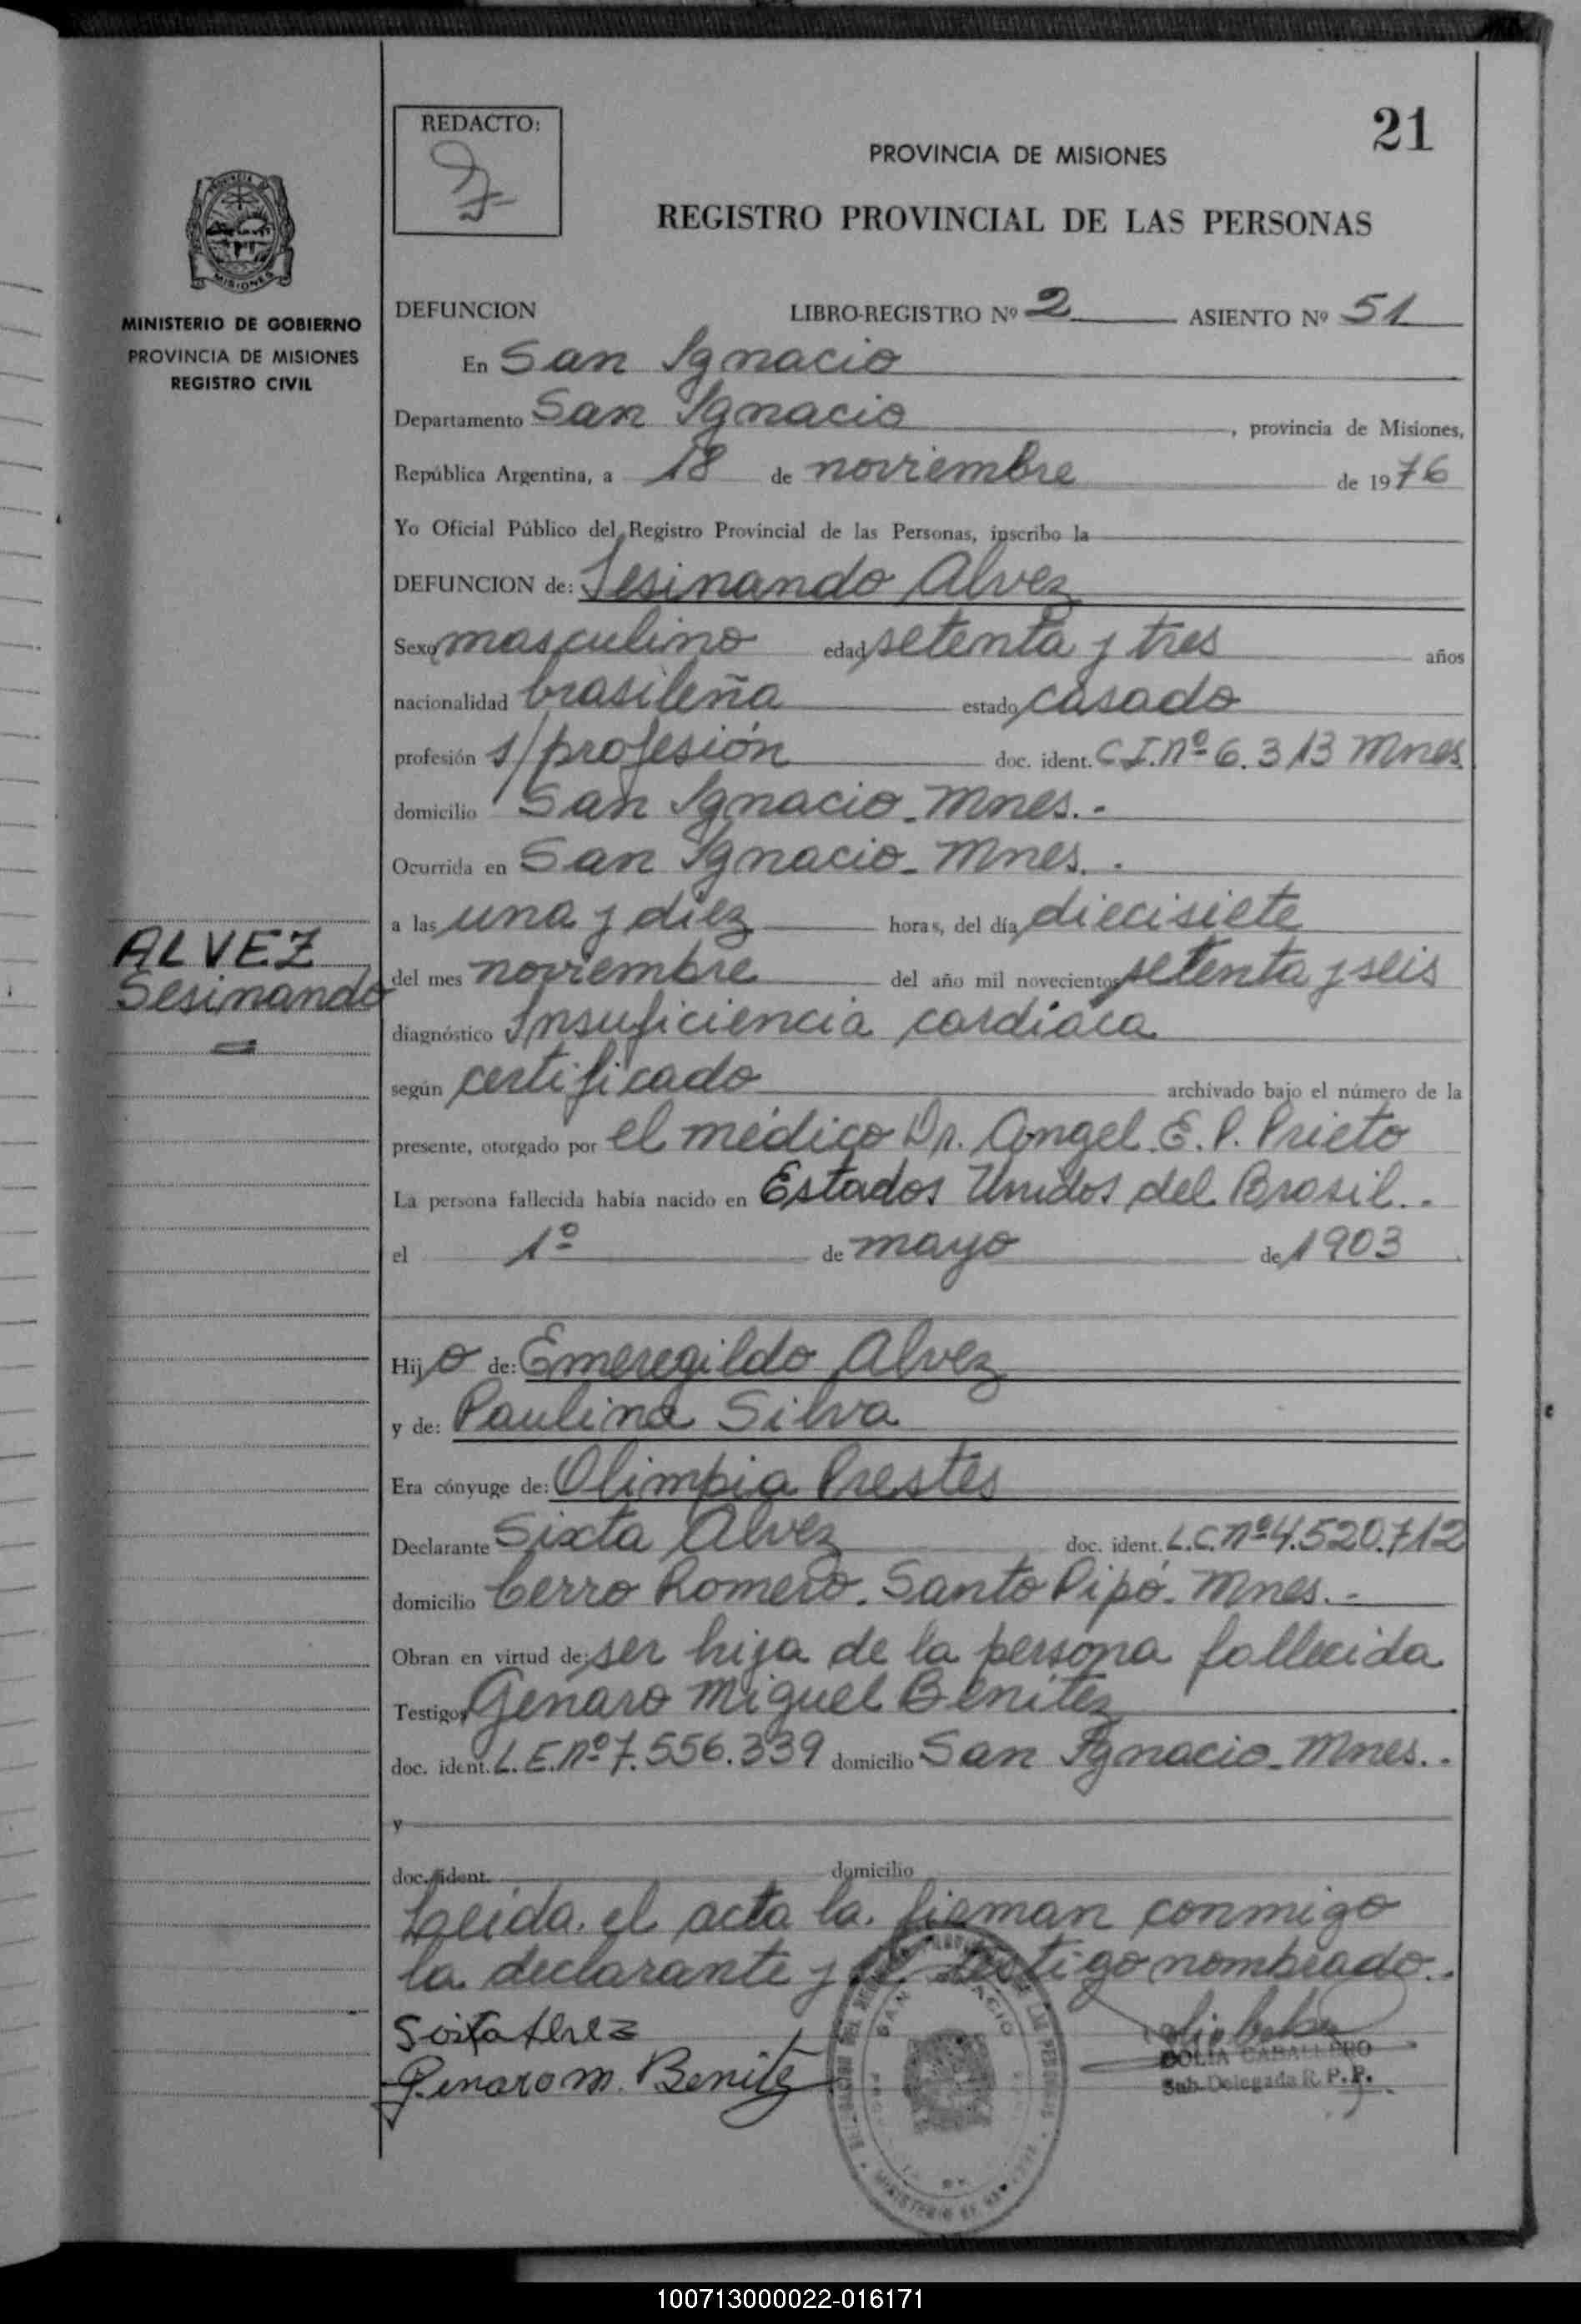 REDACTO:
21
PROVINCIA DE MISIONES
REGISTRO PROVINCIAL DE LAS PERSONAS
PROVINCIA DE
MISIONES
MINISTERIO DE GOBIERNO
PROVINCIA DE MISIONES
REGISTRO CIVIL
DEFUNCION LIBRO-REGISTRO Nº 2 ASIENTO Nº 51
En San Ignacio
Departamento San Ignacio, provincia de Misiones,
República Argentina, a 18 de noviembre de 1976
Yo Oficial Público del Registro Provincial de las Personas, inscribo la
DEFUNCION de: Sesinando Alvez
Sexo masculino edad setenta y tres años
nacionalidad brasileña estado casado
profesión s/profesión doc. ident. C.I.nº 6.313 Mnes
domicilio San Ignacio - Mnes.-
Ocurrida en San Ignacio - Mnes.
a las una y diez horas, del día diecisiete
ALVEZ
Sesinando
del mes noviembre del año mil novecientos setenta y seis
diagnóstico Insuficiencia cardíaca
según certificado archivado bajo el número de la
presente, otorgado por el médico Dr. Angel E. P. Prieto
La persona fallecida había nacido en Estados Unidos del Brasil.-
el 1º de mayo de 1903
Hijo de: Emeregildo Alvez
y de: Paulina Silva
Era cónyuge de: Olimpia Prestes
Declarante Sixta Alvez doc. ident. L.C.nº 4.520.712
domicilio Cerro Romero - Santo Pipó - Mnes.-
Obran en virtud de: ser hija de la persona fallecida
Testigos Genaro Miguel Benitez
doc. ident. L.E.nº 7.556.339 domicilio San Ignacio - Mnes.-
y
doc. ident. domicilio
Leída el acta la firman conmigo
la declarante y el testigo nombrado.-
Genaro m. Benitez
CABALLERO
Sub-Delegada R. P. P.
SAN IGNACIO
100713000022-016171